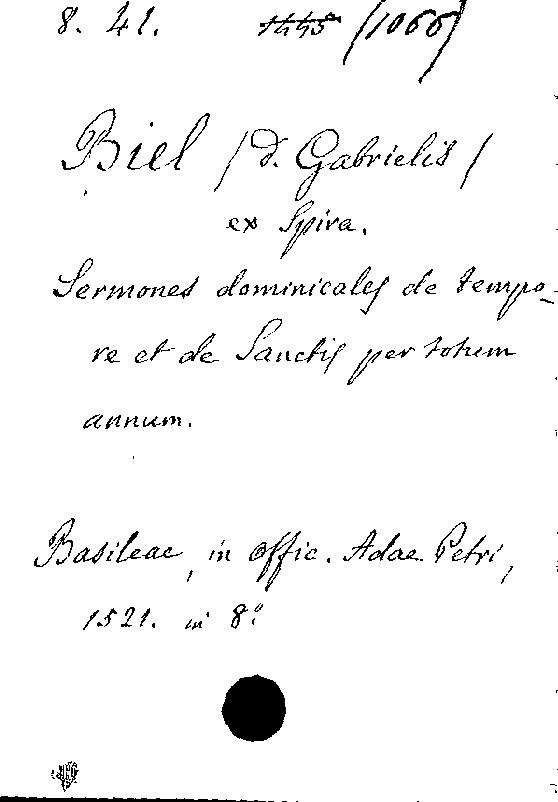 8. 41. 1445 (1066)
Biel / d. Gabrielis /
ex Spira.
Sermones dominicales de tempo-
re et de Sanctis per totum
annum.
Basileae, in offic. Adae Petri,
1521. in 8º